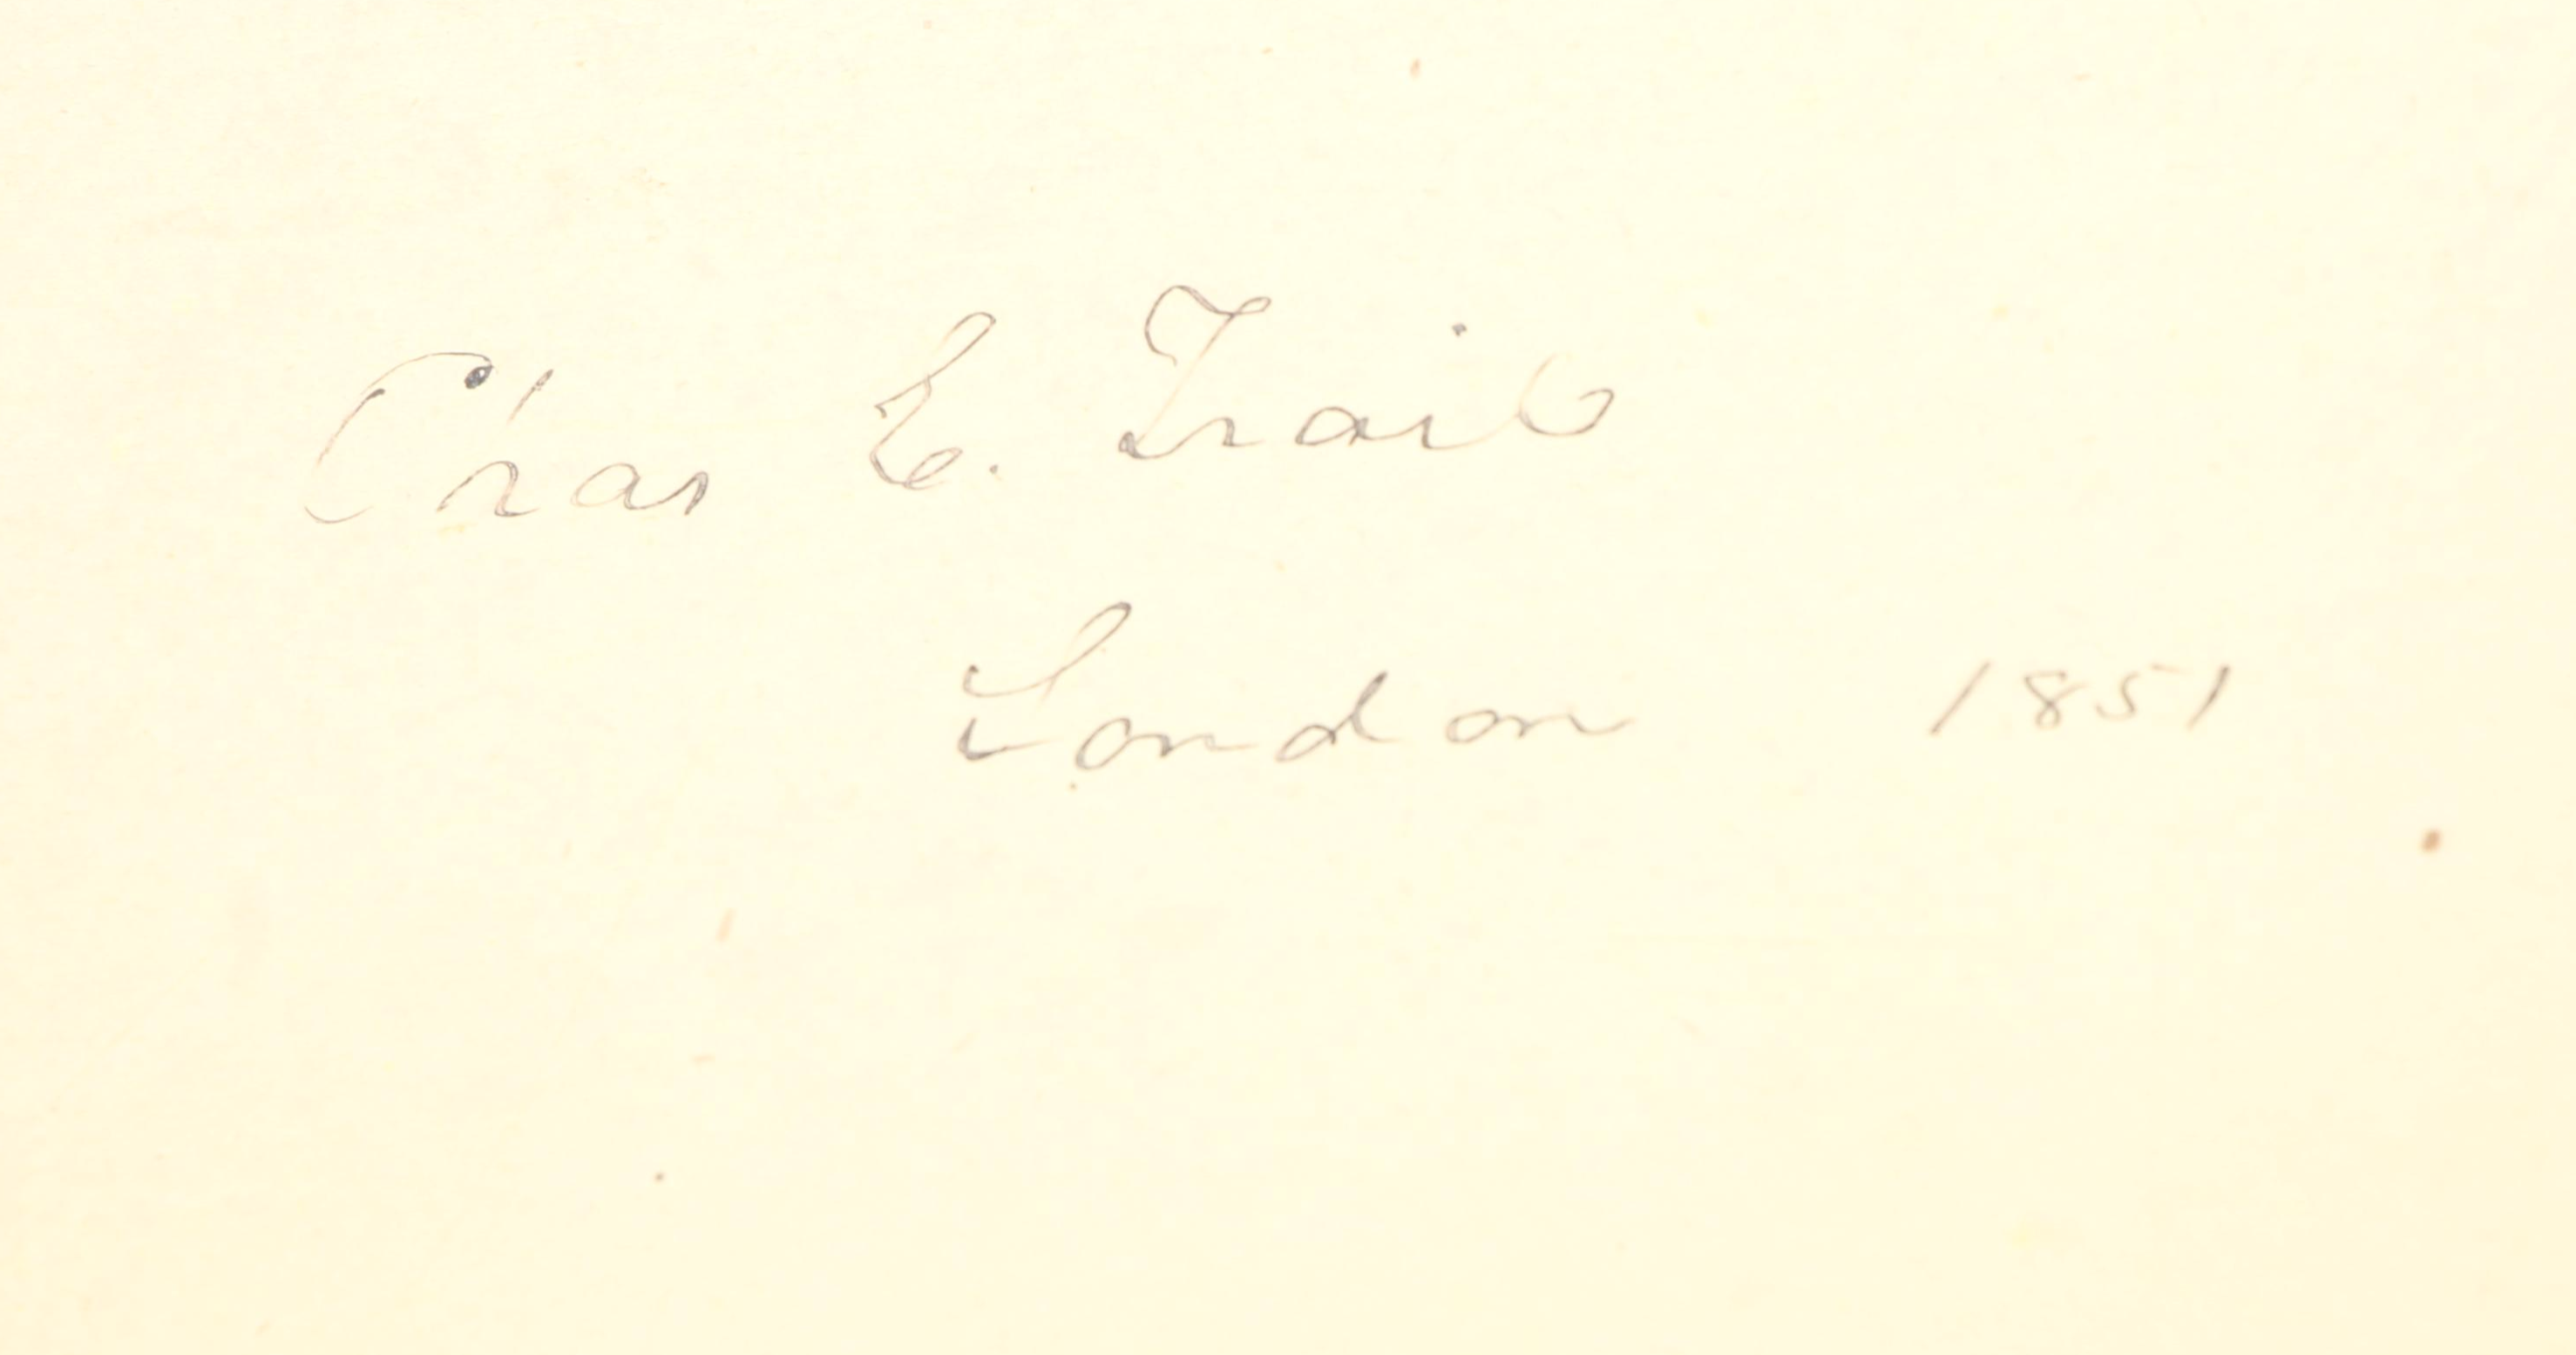 Chas E. Trail
London 1851